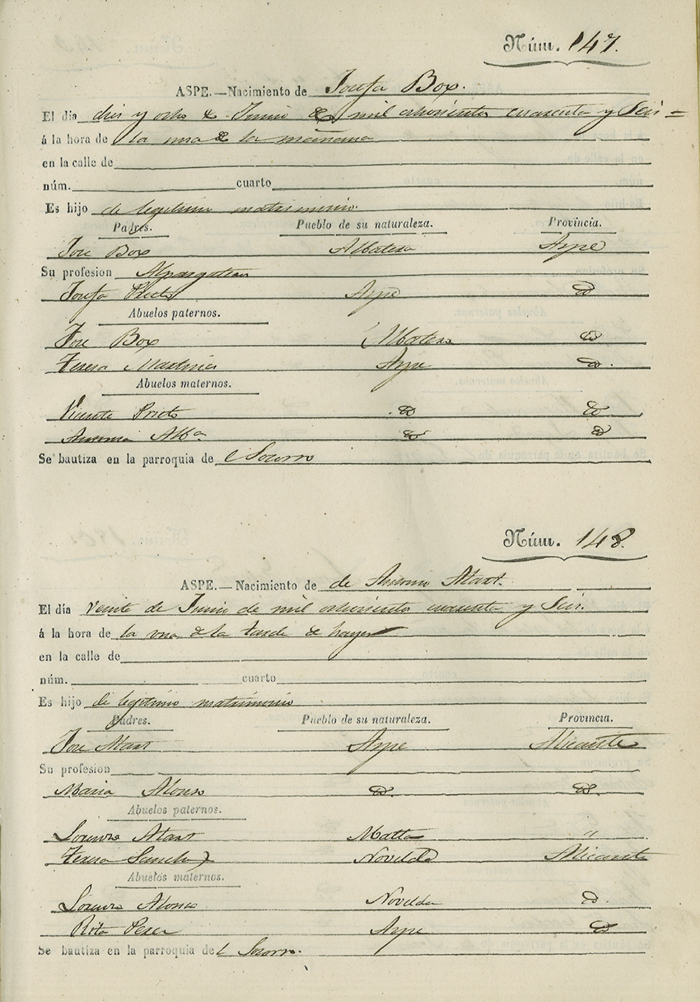 Núm. 147.
ASPE.—Nacimiento de Josefa Box.
El dia diez y ocho de Junio de mil ochocientos cuarenta y Seis=
á la hora de la una de la mañana
en la calle de
núm. cuarto
Es hijo de legitimo matrimonio.
Padres. Pueblo de su naturaleza. Provincia.
Jose Box Albatera Aspe
Su profesion Alpargatero
Josefa Prieto Aspe do
Abuelos paternos.
Jose Box Albatera do
Teresa Martinez Aspe do.
Abuelos maternos.
Vicente Prieto do do
Antonia Alba do do
Se bautiza en la parroquia de el Socorro
Núm. 148.
ASPE.—Nacimiento de de Antonio Atart.
El dia Veinte de Junio de mil ochocientos cuarenta y Seis.
á la hora de la una de la tarde de hayer
en la calle de
núm. cuarto
Es hijo de legitimo matrimonio
Padres. Pueblo de su naturaleza. Provincia.
Jose Atart Aspe Alicante
Su profesion
Maria Alonso do. do.
Abuelos paternos.
Lorenzo Atart "
Teresa Sanchez Novelda Alicante
Abuelos maternos.
Lorenzo Alonso Novelda do.
Rita Perez Aspe do
Se bautiza en la parroquia de el Socorro.